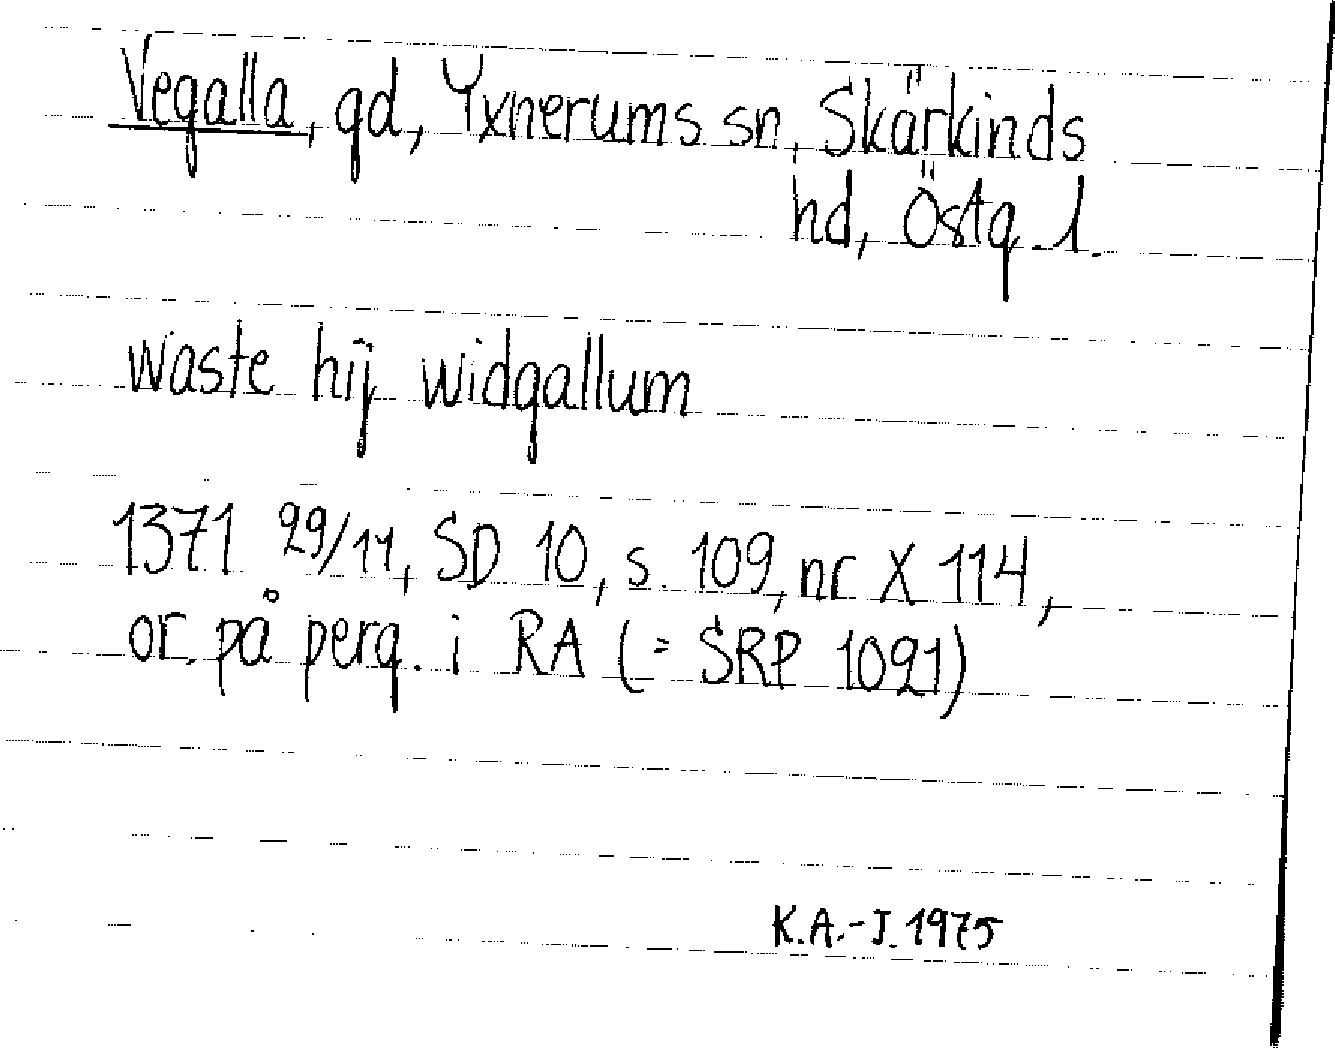 Vegalla, gd, Yxnerums sn, Skärkinds
hd, Östg. l.
waste hij widgallum
1371 29/11, SD 10, s. 109, nr X 114,
or. på perg. i RA (= SRP 1021)
K.A.-J. 1975